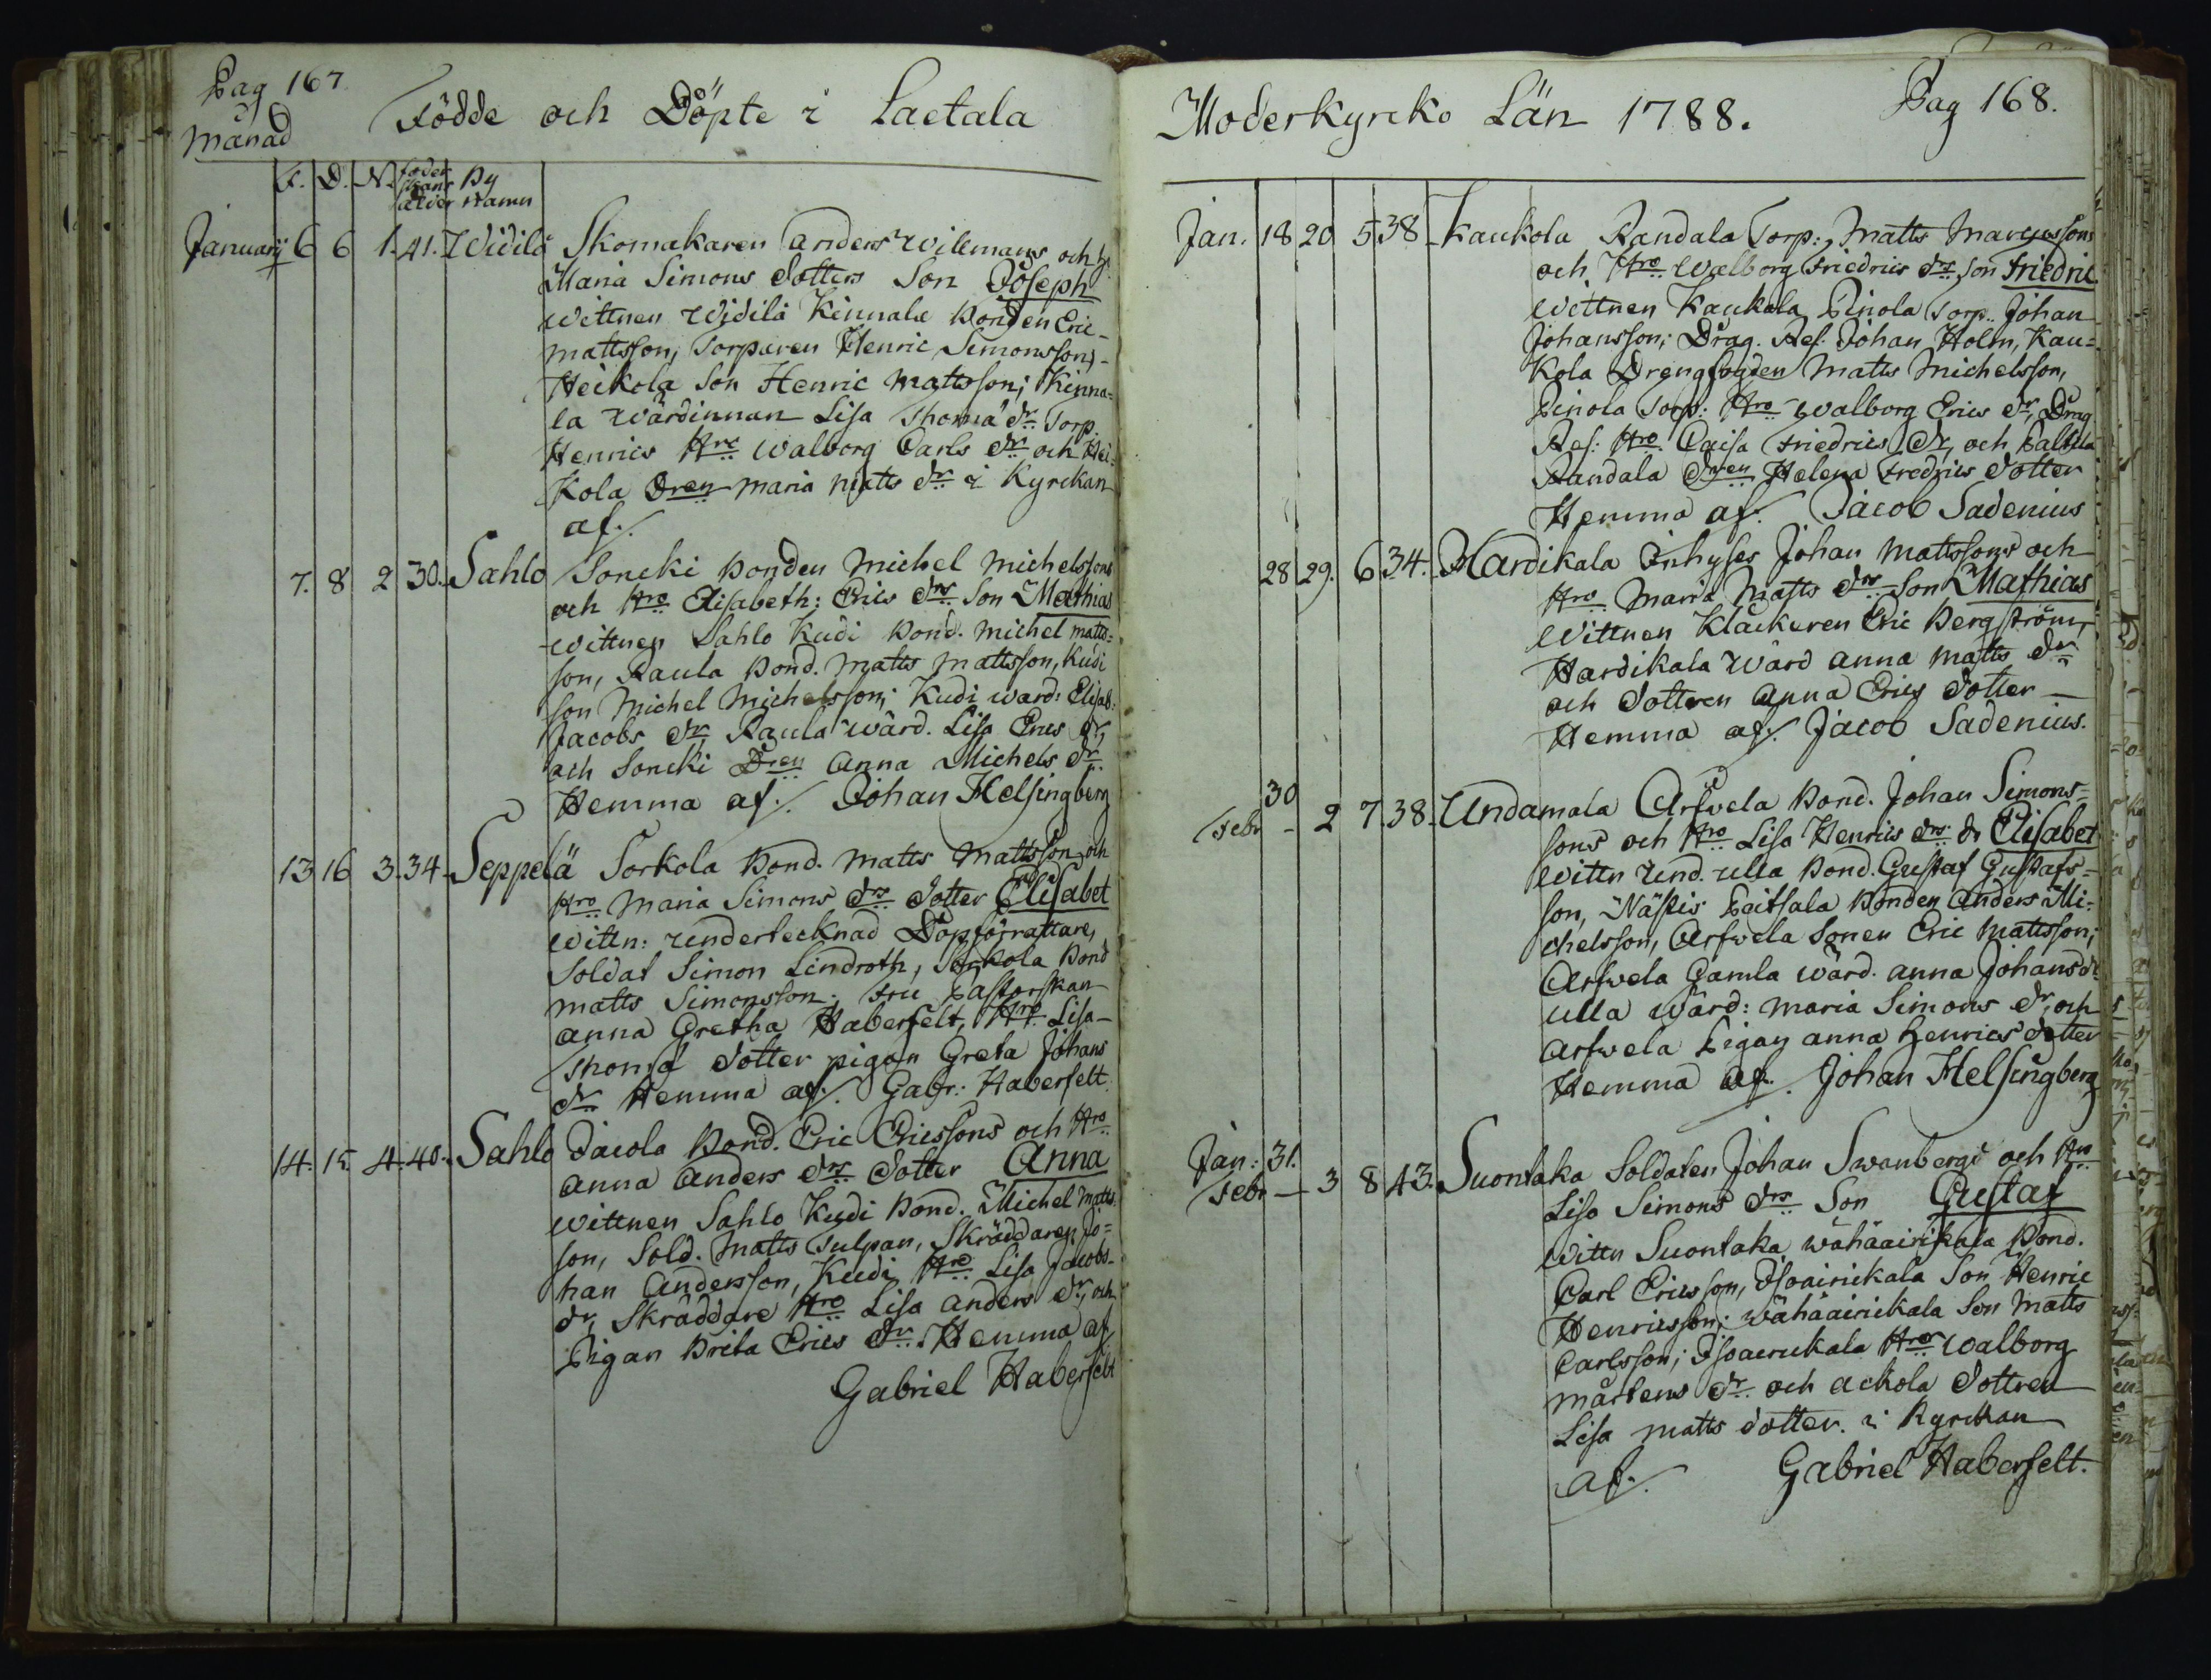 Pag 167
Månad
Födde och Döpte i Laetala
F. D. N. foder skans ålder By Namn
Januarij 6 6 1. 41. Widilä Skomakaren Anders Wilemans och h:
Maria Simons Dotters Son Joseph
Wittnen Widilä Kinnala Bonden Eric
Mattsson, Torparen Henric Simonsson,
Heikola Son Henric Mattsson; Kinna=
la Wärdinnan Lisa Thoma dr Torp.
Henrics Hro Walborg Carls dr och Hei=
kola Dren Maria Matts dr i Kyrckan
af./.
7. 8 2 30. Sahlo Soncki Bonden Michel Michelssons
och Hro Elisabeth: Erics drs Son Mathias
Wittnen Sahlo Kudi Bond. Michel Matts=
son, Raula Bond. Matts Mattsson, Kudi
Son Michel Michelsson; Kudi Ward: Elisab:
Jacobs dr Raula Wärd. Lisa Erics dr,
och Soncki Dren Anna Michels dr.
Hemma af./. Johan Helsingberg
13 16 3. 34. Seppelä Sorkola Bond. Matts Mattsson och
Hro Maria Simons drs Dotter Elisabet
Wittn: Undertecknad Döpförrättare,
Soldat Simon Lindroth, Sorkola Bond
Matts Simonsson; Fru Pastorskan
Anna Gretha Haberfelt, Hro Lisa
Thoma Dotter pigan Greta Johans
dr Hemma af./. Gabr: Haberfelt.
14. 15. 4. 40. Sahlo Jacola Bond. Eric Ericssons och Hro
Anna Anders drs Dotter Anna
Wittnen Sahlo Kudi Bond. Michel Matts
son, Sold. Matts Tulpan, Skräddaren Jo=
han Andersson, Kudi Hro Lisa Jacobs
dr, Skräddare Hro Lisa Anders dr, och
Pigan Brita Erics dr. Hemma af
Gabriel Haberfelt
Moderkyrcko Län 1788.
Pag 168.
Jan. 18 20 5 38 Kaukola Randala Torp: Matts Marcussons
och Hro Walborg Friedrics drs Son Friedric
Wittnen Kaukola Pinola Torp. Johan
Johansson; Drag. Ref. Johan Holm, Kau=
kola Drengfogden Matts Michelsson,
Pinola Torp: Hro Walborg Erics dr, Drag
Ref: Hro Caisa Friedrics dr, och Paltila
Randala Dren Helena Fredrics Dotter
Hemma af. Jacob Sadenius
28 29. 6 34. Hardikala Inhyses Johan Mattssons och
Hro Maria Matts drs Son Mathias
Wittnen Klåckaren Eric Bergström,
Hardikala Wärd Anna Matts dr
och Dottren Anna Erics Dotter
Hemma af./. Jacob Sadenius.
30
Febr - 2 7. 38. Undamala Arfwela Bond. Johan Simons=
sons och Hro Lisa Henrics drs dr Elisabet
Wittn Und. Ulla Bond. Gustaf Gustafs=
son, Nästis Peitsala Bonden Anders Mi=
chelsson, Arfwela Sonen Eric Mattsson;
Arfwela Gamla Wärd. Anna Johans dr
Ulla Wärd: Maria Simons dr, och
Arfwela Pigan Anna Henrics Dotter
Hemma af./. Johan Helsingberg
Jan: 31.
Febr - 3 8 43. Suontaka Soldaten Johan Swanbergs och Hro
Lisa Simons drs Son Gustaf
Wittn Suontaka Wähäairikala Bond.
Carl Ericsson, Isoairickala Son Henric
Henricsson; Wähäairickala Son Matts
Carlsson; Isoairickala Hro Walborg
Mårtens dr och Ackola Dottren
Lisa Matts Dotter. i Kyrckan
af./. Gabriel Haberfelt.